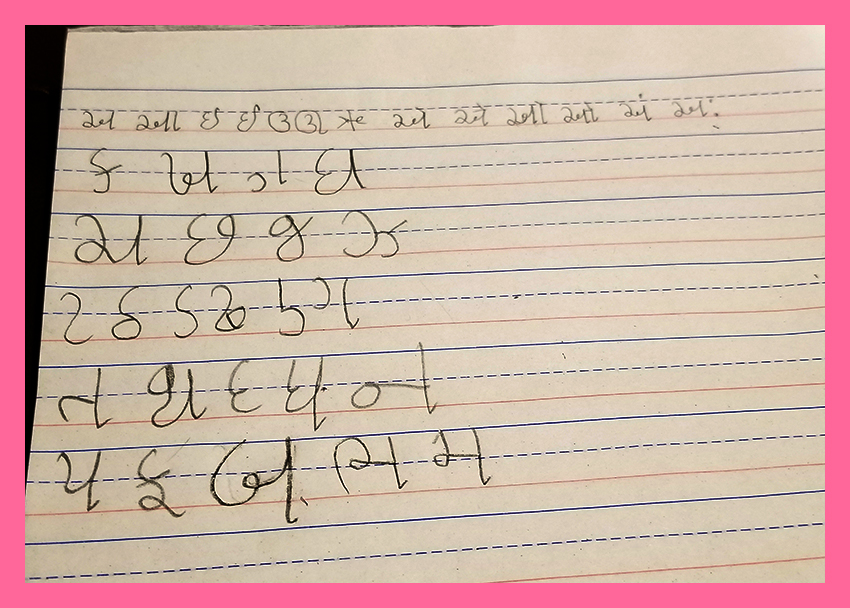 અ આ ઇ ઈ ઉ ઊ ઋ એ ઐ ઓ ઔ અં અઃ
ક ખ ગ ઘ
ચ છ જ ઝ
ટ ઠ ડ ઢ ણ
ત થ દ ધ ન
પ ફ બ ભ મ